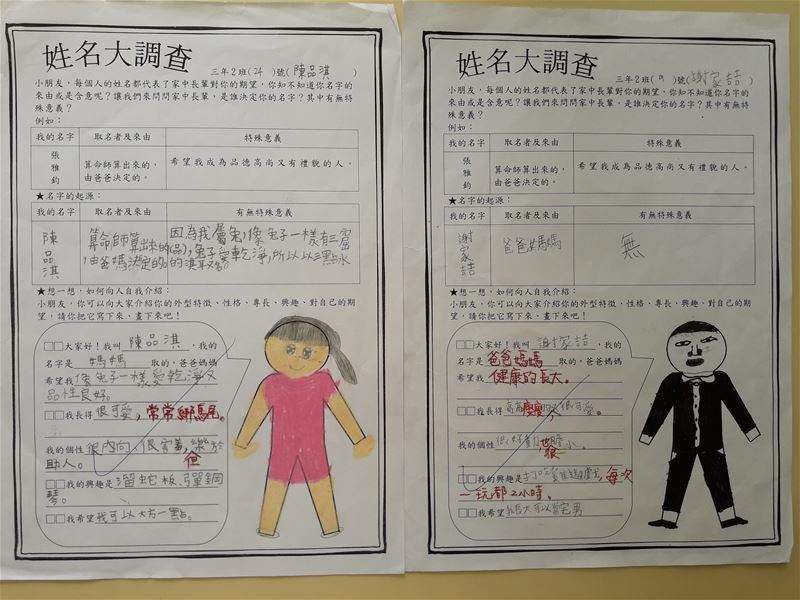 姓名大調查
三年2班(24)號(陳品淇)
小朋友，每個人的姓名都代表了家中長輩對你的期望，你知不知道你名字的
來由或是含意呢？讓我們來問問家中長輩，是誰決定你的名字？其中有無特
殊意義？
例如：
我的名字 取名者及來由 特殊意義
張雅鈞 算命師算出來的， 希望我成為品德高尚又有禮貌的人。
由爸爸決定的。
★名字的起源：
我的名字 取名者及來由 有無特殊意義
陳品淇 算命師算出來的， 因為我屬兔，像兔子一樣有三窟
由爸媽決定的。 的(品)，兔子愛乾淨，所以以三點水
的淇取名。
★想一想，如何向人自我介紹：
小朋友，你可以向大家介紹你的外型特徵、性格、專長、興趣、對自己的期
望，請你把它寫下來、畫下來吧！
□□大家好！我叫 陳品淇 ，我的
名字是 媽媽 取的，爸爸媽媽
希望我像兔子一樣愛乾淨又
品性良好。
□□我長得很可愛，常常綁馬尾。
我的個性很內向，很害羞，樂於
助人。 但
□□我的興趣是溜蛇板，彈鋼
琴。
□□我希望我可以大方一點。
姓名大調查
三年2班( )號(謝家喆)
小朋友，每個人的姓名都代表了家中長輩對你的期望，你知不知道你名字的
來由或是含意呢？讓我們來問問家中長輩，是誰決定你的名字？其中有無特
殊意義？
例如：
我的名字 取名者及來由 特殊意義
張雅鈞 算命師算出來的， 希望我成為品德高尚又有禮貌的人。
由爸爸決定的。
★名字的起源：
我的名字 取名者及來由 有無特殊意義
謝家喆 爸爸媽媽 無
★想一想，如何向人自我介紹：
小朋友，你可以向大家介紹你的外型特徵、性格、專長、興趣、對自己的期
望，請你把它寫下來、畫下來吧！
□□大家好！我叫 謝家喆 ，我的
名字是爸爸媽媽 取的，爸爸媽媽
希望我 健康的長大。
□□我長得高高瘦瘦的很可愛。
我的個性很好動 膽小。
很
□□我的興趣是打 ，每次
一玩都2小時。
□□我希望長大可以當宅男